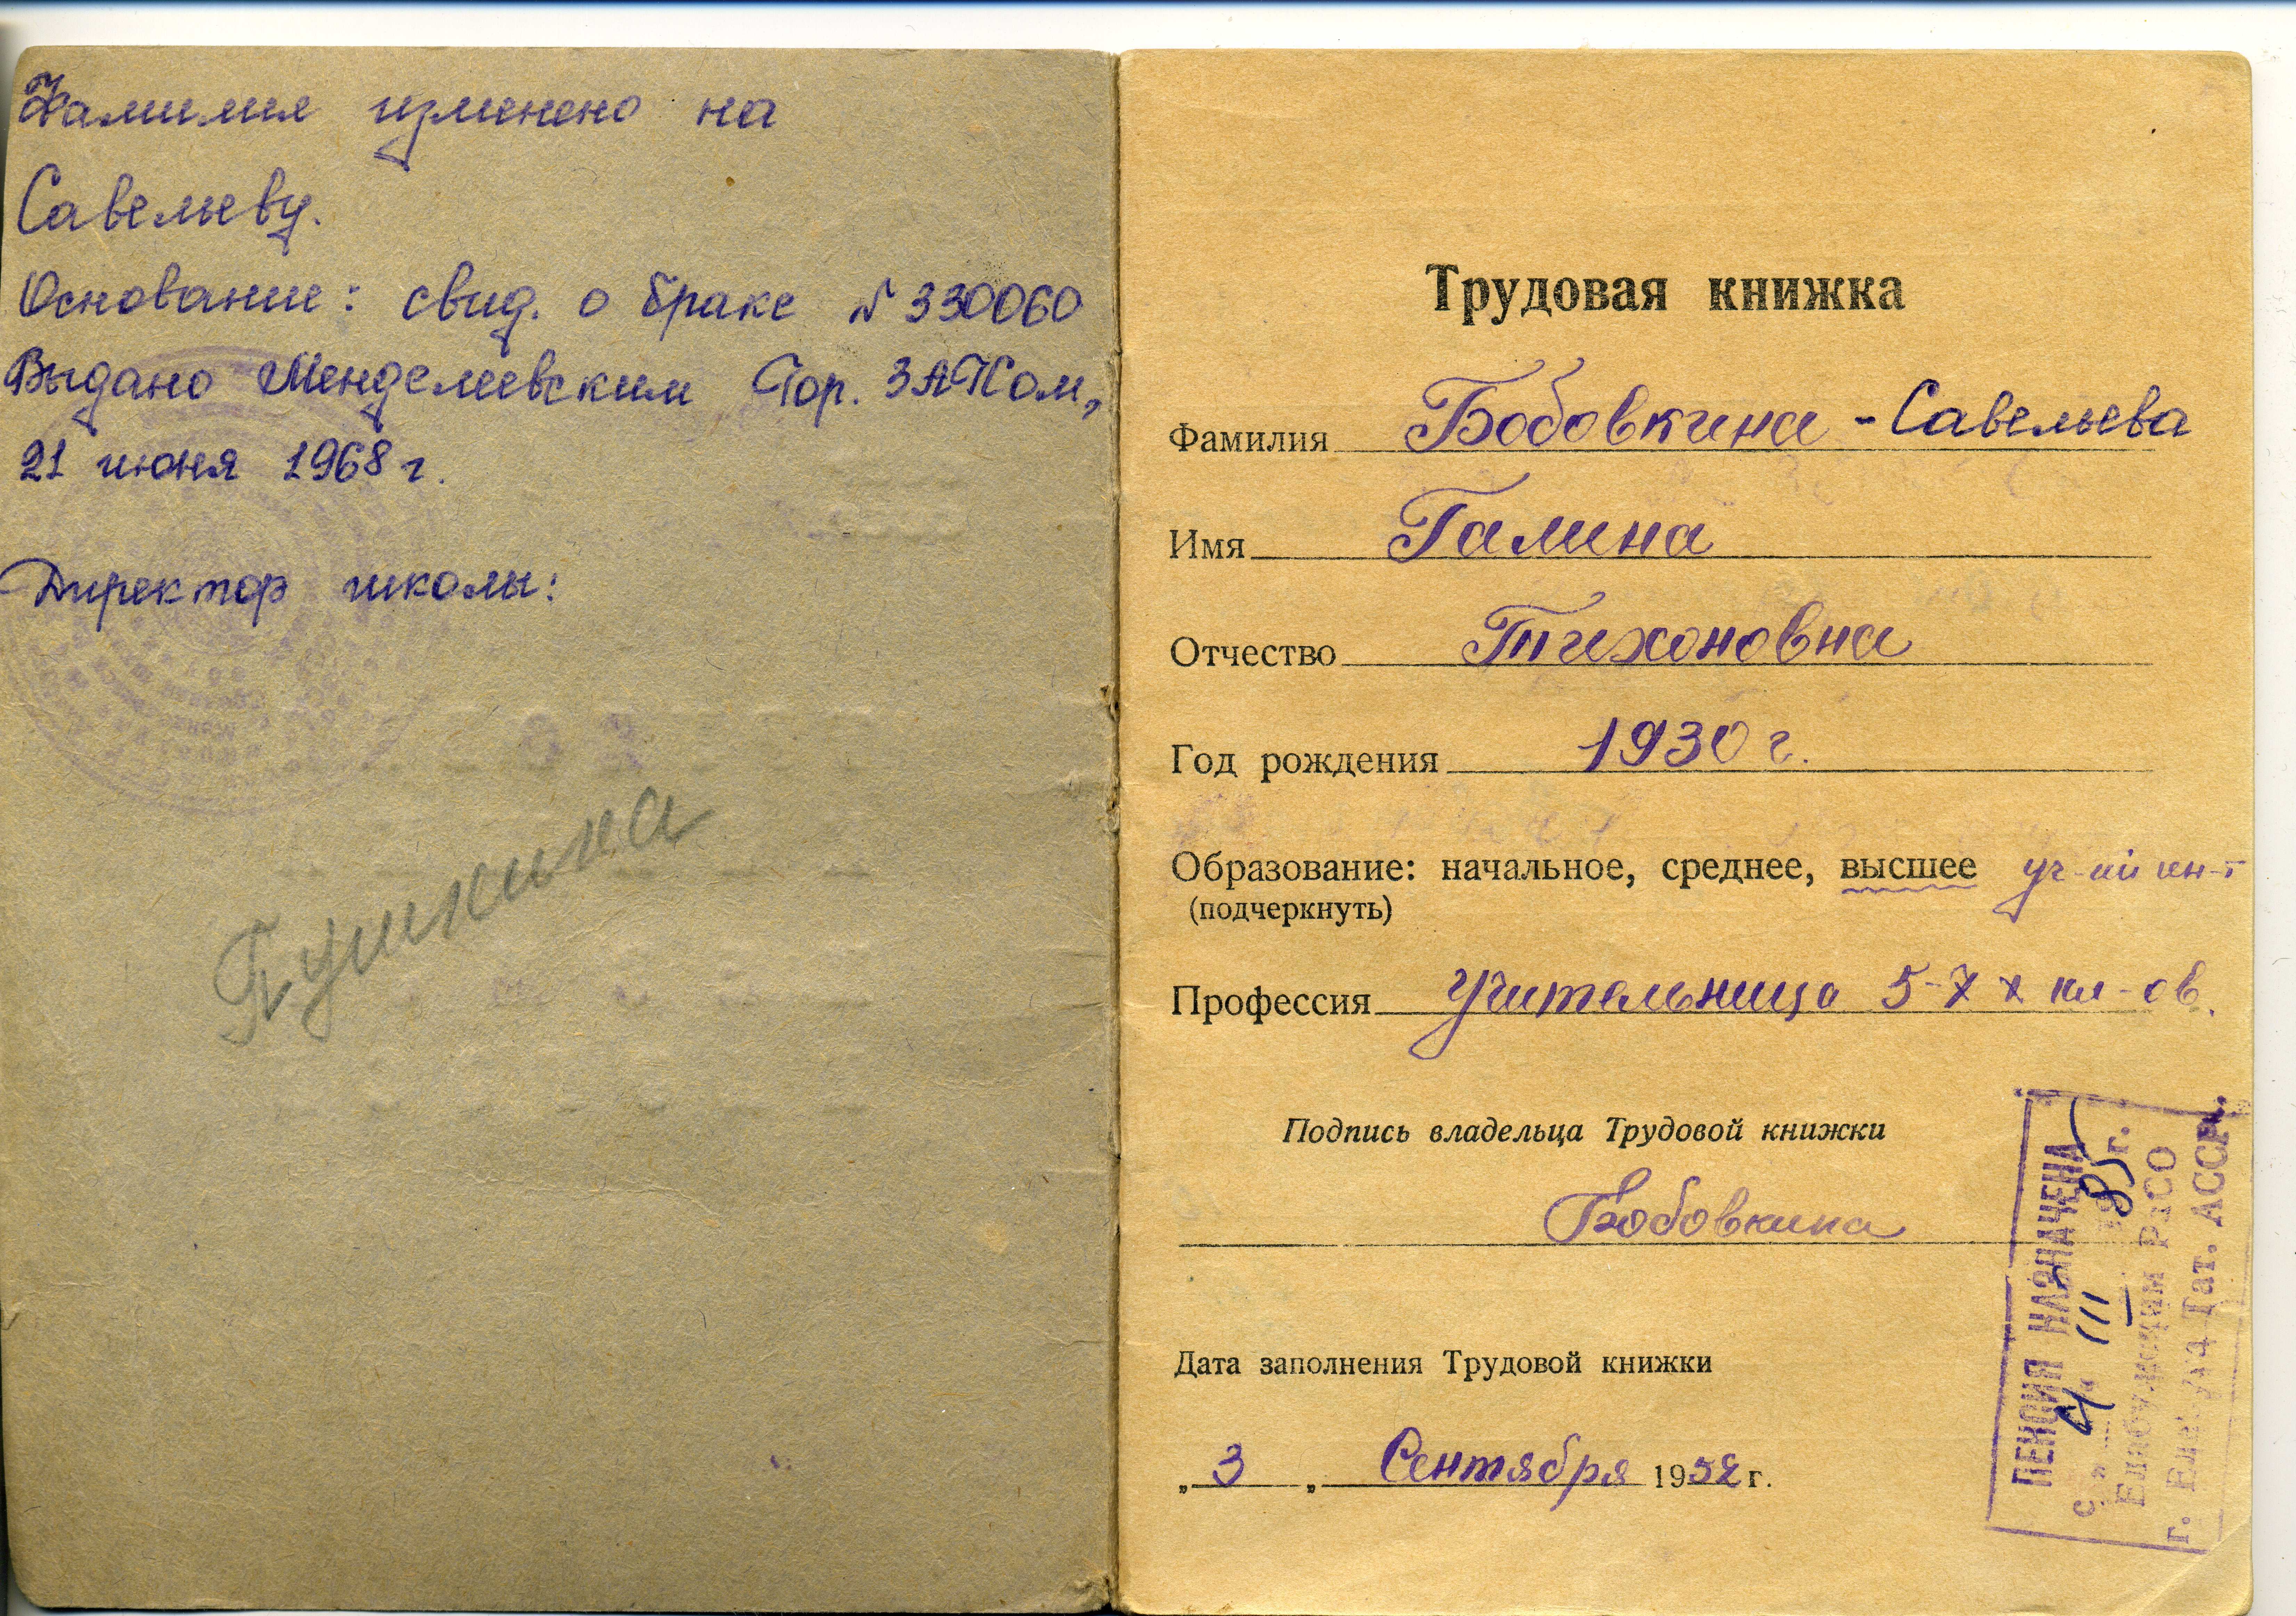 Фамилия изменено на
Савельеву.
Основание: свид. о браке № 330060
Выдано Менделеевским Гор. ЗАГСом,
21 июня 1968 г.
Директор школы:
Трудовая книжка
Фамилия Бобовкина - Савельева
Имя Галина
Отчество Тихоновна
Год рождения 1930 г.
Образование: начальное, среднее, высшее уч-кий ин-т
(подчеркнуть)
Профессия Учительница 5-7 х кл-ов.
Подпись владельца Трудовой книжки
Бобовкина
Дата заполнения Трудовой книжки
„ 3 „ Сентября 1952 г.
ПЕНСИЯ НАЗНАЧЕНА
с „4“ III 1985 г.
Елабужским РаСО
г. Елабуга Тат. АССР.